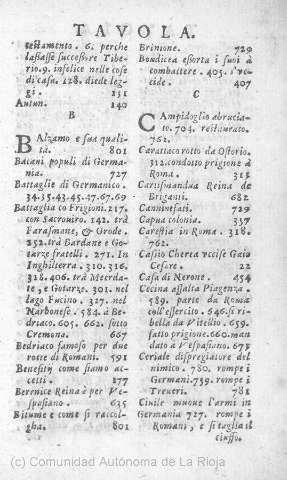 TAVOLA.
testamento. 6. perche
lasciasse successore Tibe-
rio. 9. infelice nelle cose
di casa. 128. diede leg-
gi. 151
Autun. 140
B
BAlzamo e sua quali-
ta. 801
Batani populi di Germa-
nia. 727
Battaglie di Germanico.
34. 35. 43. 45. 47. 67. 69
Battaglia co Frigioni. 217.
con Sacrouiro. 142. tra
Farasmane, & Orode.
252. tra Bardane e Go-
tarze fratelli. 271. In
Inghilterra. 310. 316.
318. 406. trà Meerda-
te, e Gotarze. 301. nel
lago Fucino. 327. nel
Narbonese. 584. à Be-
driaco. 605. 662. sotto
Cremona. 667
Bedriaco famoso per due
rotte di Romani. 591
Benefitij come siano ac-
cetti. 277
Berenice Reina è per Ve-
spesiano. 635
Bitume e come si raccol-
gha. 801
Brinione. 729
Boudicea esorta i suoi à
combattere. 405. s'vc-
cide. 407
C
CAmpidoglio abrucia-
to. 704. restaurato.
762.
Carattaco rotto da Ostorio.
312. condotto prigione à
Roma. 315
Cartismandua Reina de
Briganti. 682
Canninefati. 729
Capua colonia. 357
Carestia in Roma. 318.
762.
Cassio Cherea vccise Gaio
Cesare. 22
Casa di Nerone. 454
Cecina assalta Piagenza.
589. parte da Roma
coll'essercito. 646. si ri-
bella da Vitellio. 659.
fatto prigione. 660. man
dato a Vespasiano. 673
Ceriale dispregiatore del
nimico. 780. rompe i
Germani. 739. rompe i
Treueri. 781
Ciuile muoue l'armi in
Germania 727. rompe i
Romani, e si taglia il
ciuffo.
(c) Comunidad Autónoma de La Rioja